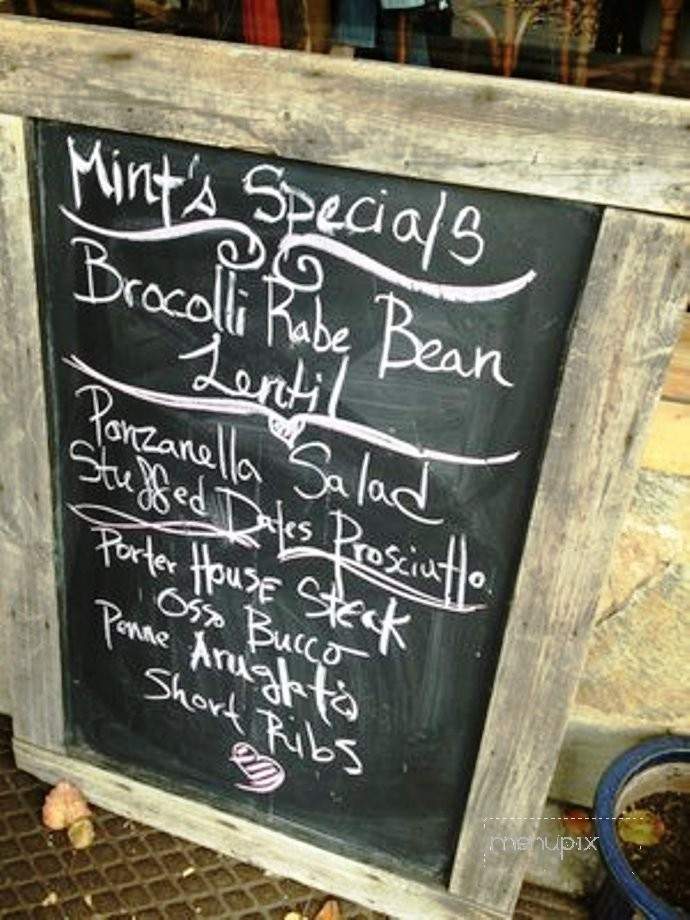 Mint's Specials
Brocolli Rabe Bean
Lentil
Panzanella Salad
Stuffed Dates Prosciutto
Porter House Steak
Osso Bucco
Penne
Short Ribs
menupix